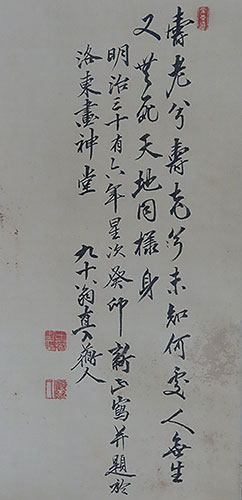 壽老兮壽老兮未知何處人無生
又無死天地同様身
明治三十有六年星次癸卯 新正寫并題於
洛東畫神堂 九十翁直入山人